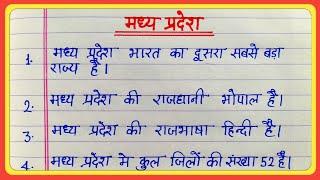 मध्य प्रदेश
1. मध्य प्रदेश भारत का दूसरा सबसे बड़ा
राज्य है।
2. मध्य प्रदेश की राजधानी भोपाल है।
3. मध्य प्रदेश की राजभाषा हिन्दी है।
4. मध्य प्रदेश मे कुल जिलों की संख्या 52 है।